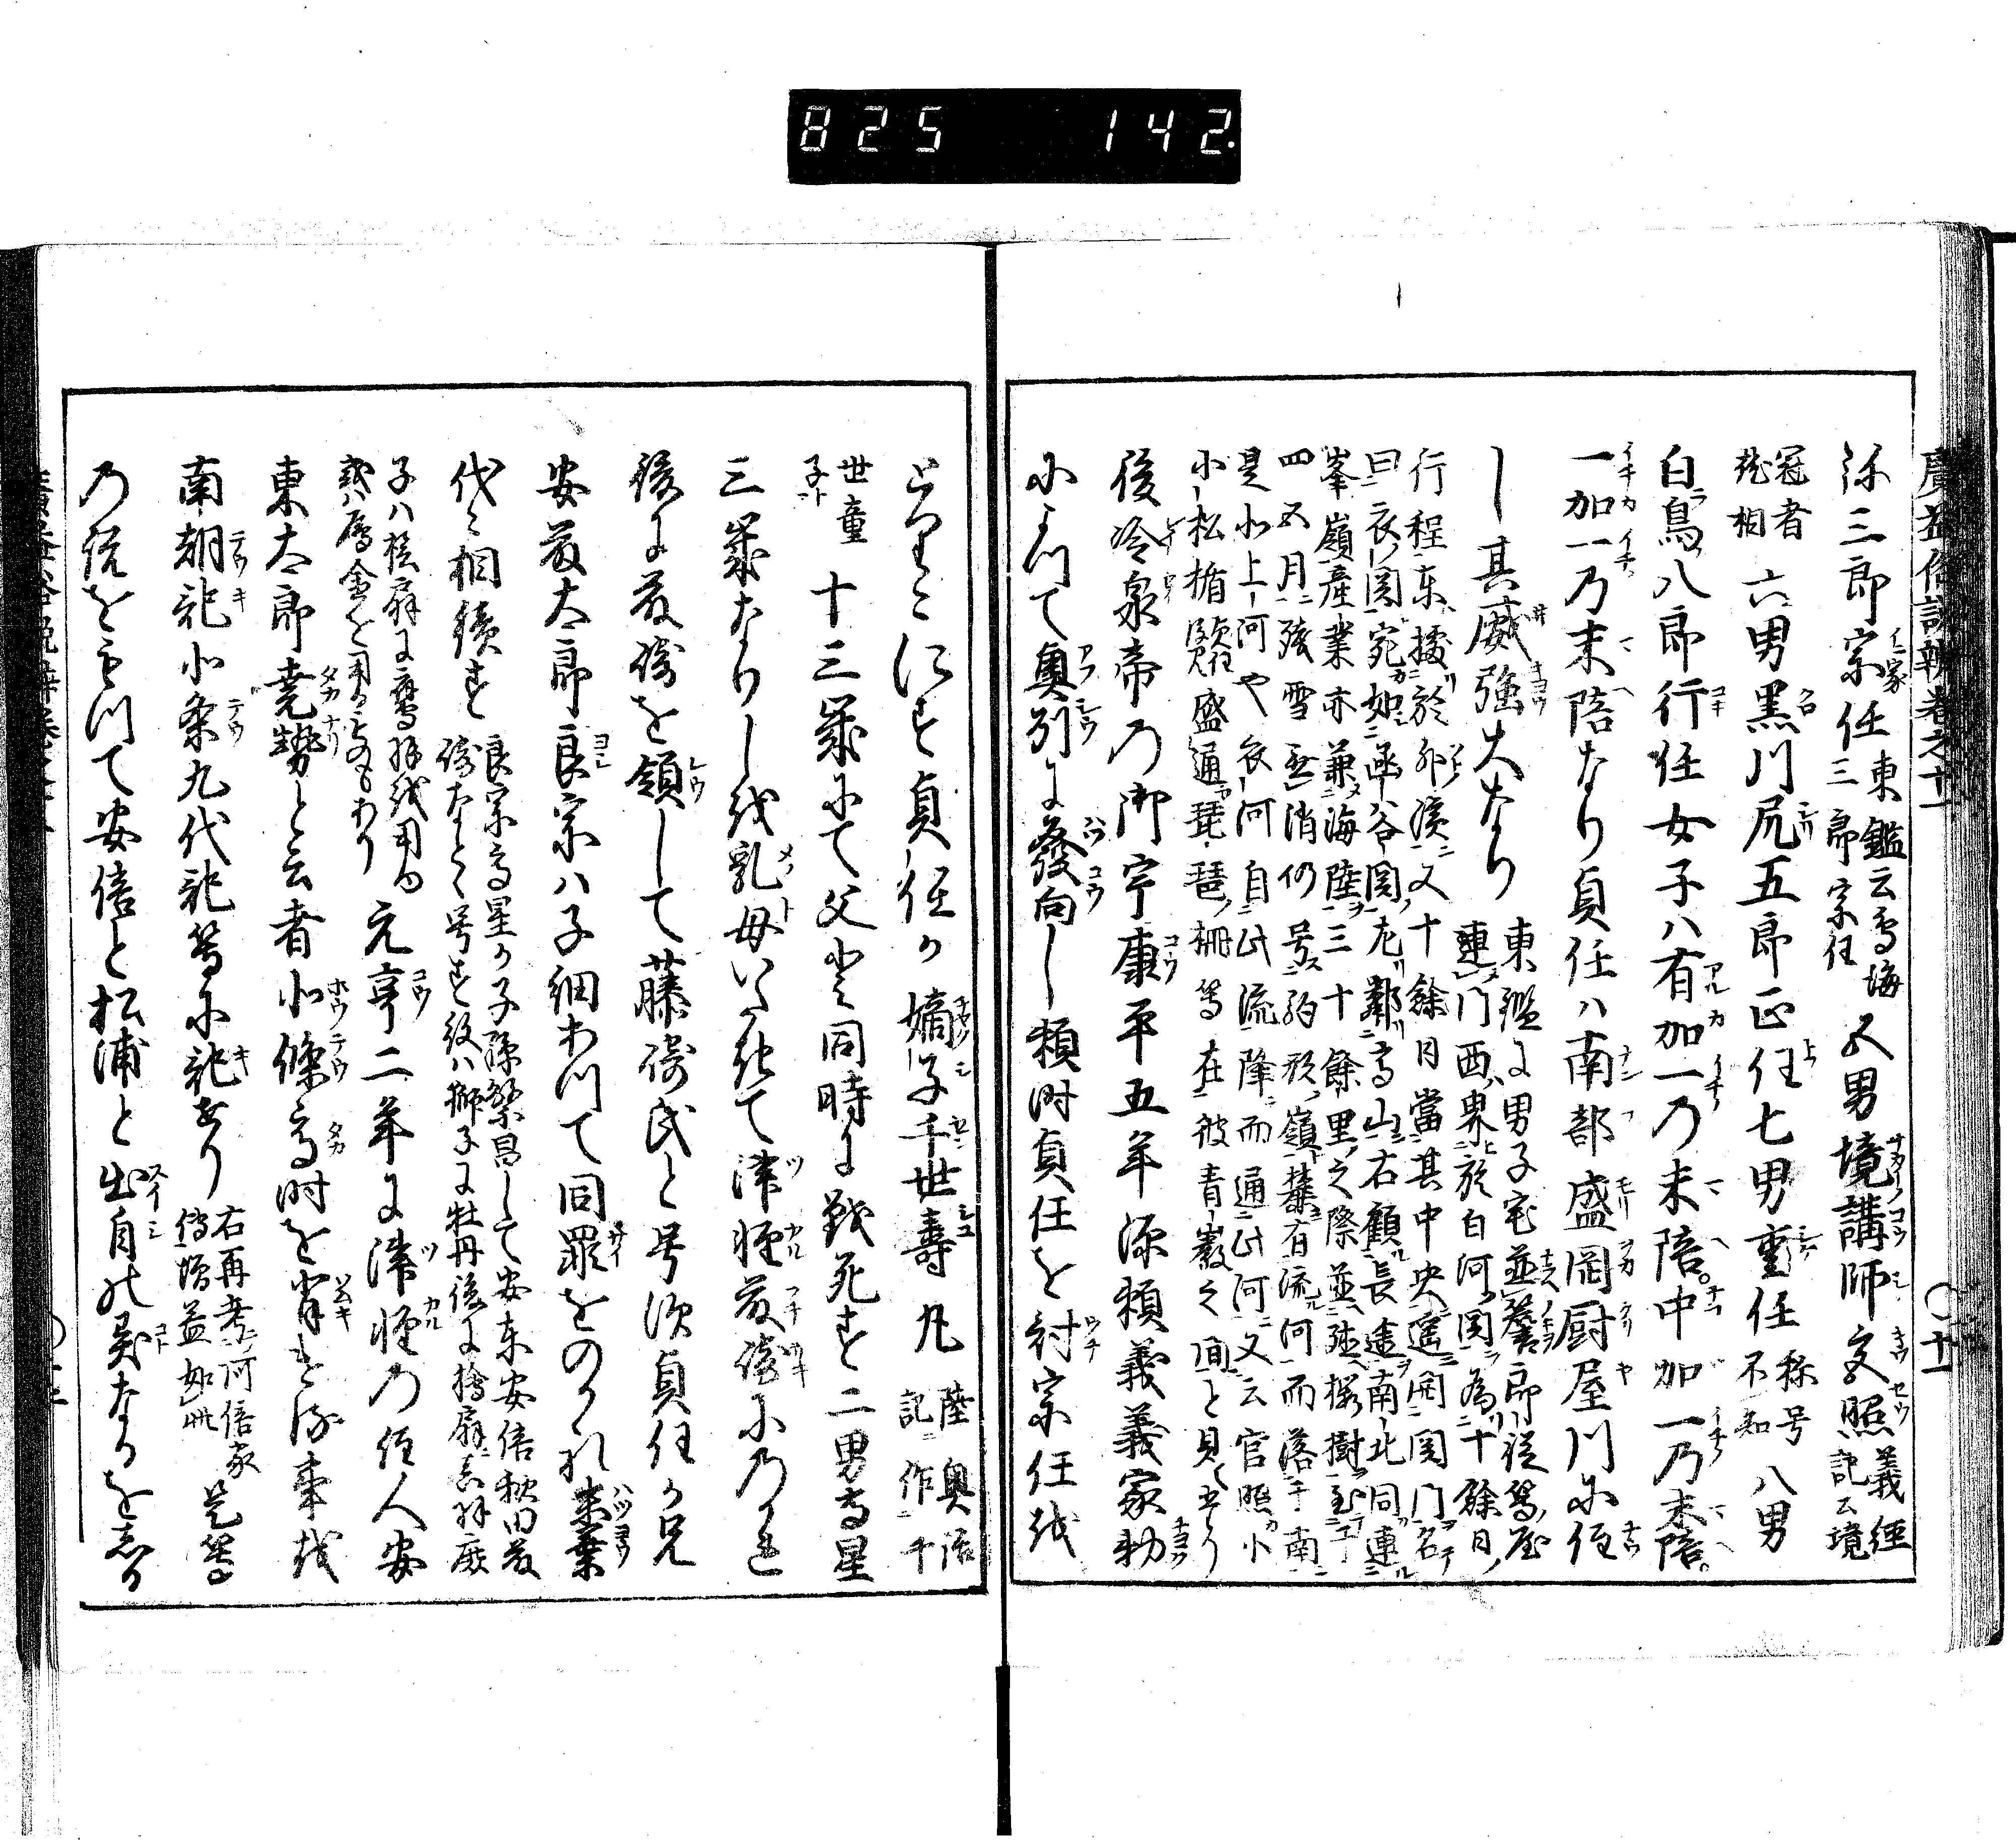 825 142.
廣益俗説辨巻之十一 〇十一
弥三郎宗任 東鑑云鳥海三郎宗任 五男境講師官照 義經記云境
冠者 六男黒川尻五郎正任七男重任 称号不知 八男
白鳥八郎行任女子ハ有加一乃末陪。中加一乃末陪。
一加一乃末陪なり貞任ハ南部盛岡厨屋川に住
し其威強大なり 東鑑に男子宅並簷郎従等屋
連門西界於白河関為十餘日
行程東據於外濱又十餘日當其中央遥開関門名
曰衣関宛如函谷関左鄰高山右顧長途南北同連
峯嶺産業亦兼海陸三十餘里之際並殖桜樹至于
四五月残雪無消仍号駒形嶺麓有流河而落于南
是北上河也衣河自北流降而通此河又云官照小
松楯 盛通琵琶柵等在彼青巖之間と見えたり
後冷泉帝乃御宇康平五年源頼義義家勅
によつて奥列に發向し頼時貞任を討宗任を
とりこにす貞任か嫡子千世壽丸 陸奥話記作千
世童子 十三歳にて父と同時に戦死す二男高星
三歳なりしを乳母いたきて津軽藤崎にのかれ
後に藤崎を領して藤崎氏と号次貞任か兄
安藤太郎良宗ハ子細あつて同罪をのかれ
代々相續す 良宗高星か子孫繁昌して安东安倍秋田藤
崎なとゝ号す紋ハ獅子に牡丹後に檜扇
子ハ檜扇に鷹羽を用ゆ
或ハ 元亨二年に津軽の住人安
東太郎堯勢と云者北條高時を背きし事
南朝記北条九代記等に記せり 右再考阿倍家
傳増益如此 是等
乃説をもつて安倍と松浦と出自の異なるをしる